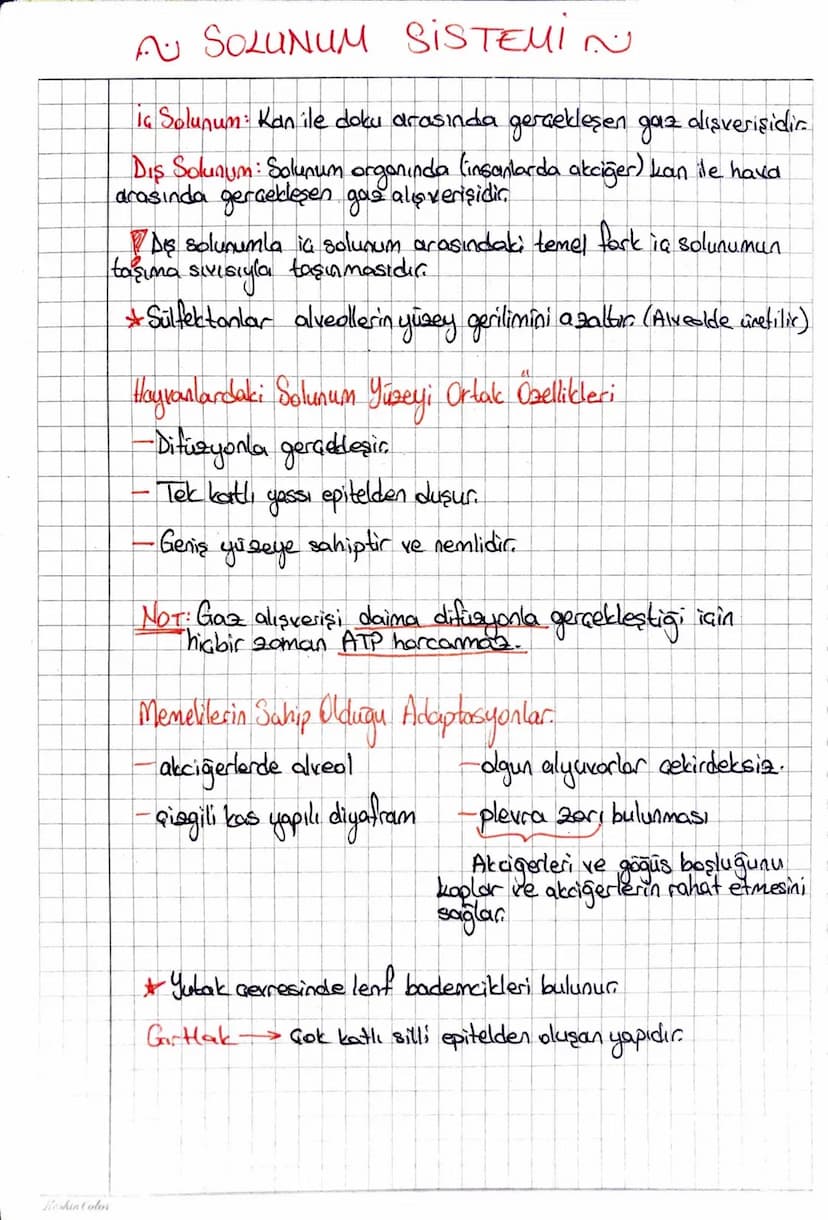 ~ SOLUNUM SİSTEMİ ~
İç Solunum: Kan ile doku arasında gerçekleşen gaz alışverişidir.
Dış Solunum: Solunum organında (insanlarda akciğer) kan ile hava
arasında gerçekleşen gaz alışverişidir.
Dış solunumla iç solunum arasındaki temel fark iç solunumun
taşıma sıvısıyla taşınmasıdır.
★ Sülfektanlar alveollerin yüzey gerilimini azaltır. (Alveolde üretilir)
Hayvanlardaki Solunum Yüzeyi Ortak Özellikleri
- Difüzyonla gerçekleşir.
- Tek katlı yassı epitelden duşur.
- Geniş yüzeye sahiptir ve nemlidir.
NOT: Gaz alışverişi daima difüzyonla gerçekleştiği için
hiçbir zaman ATP harcanmaz.
Memelilerin Sahip Olduğu Adaptasyonlar:
- akciğerlerde alveol
- olgun alyuvarlar çekirdeksiz.
- çizgili kas yapılı diyafram
- plevra zarı bulunması
Akciğerleri ve göğüs boşluğunu
kaplar ve akciğerlerin rahat etmesini
sağlar.
★ Yutak çevresinde lenf bademcikleri bulunur.
Gırtlak → Çok katlı silli epitelden oluşan yapıdır.
KeskinColor